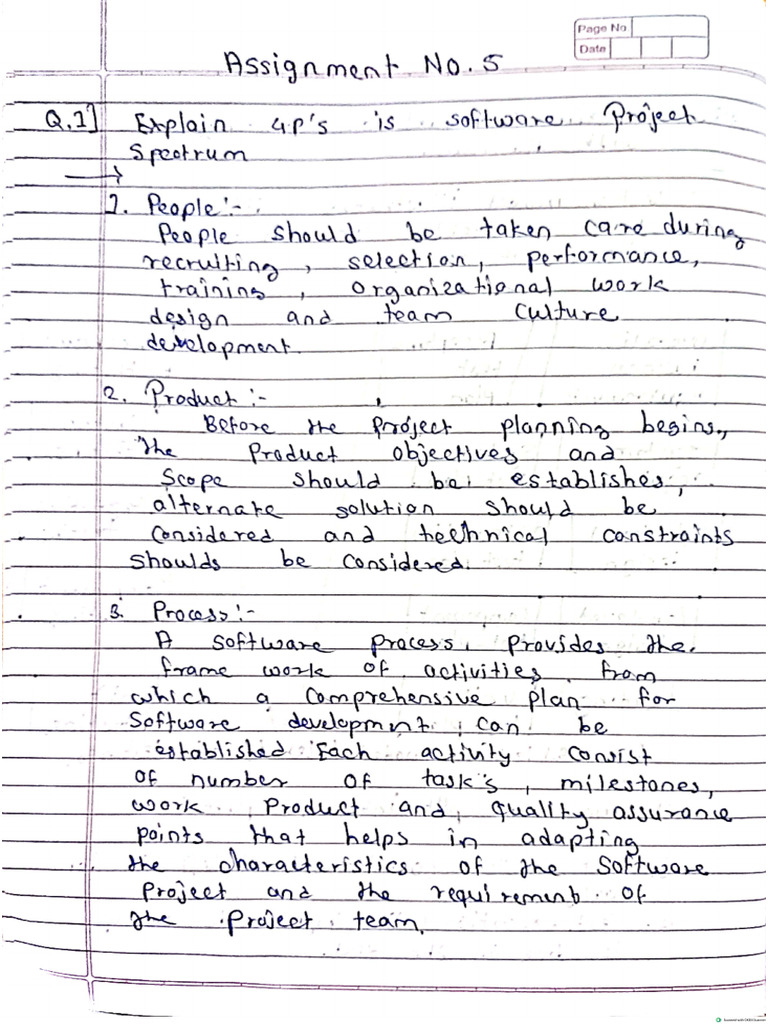 Page No
Date
Assignment No. 5
Q.1] Explain 4P's is software Project
Spectrum
→
1. People:-
People should be taken care during
recruiting, selection, performance,
training, organizational work
design and team culture
development.
2. Product:-
Before the project planning begins,
the product objectives and
scope should be establishes,
alternate solution should be
considered and technical constraints
shoulds be considered.
3. Process:-
A software process provides the
frame work of activities from
which a comprehensive plan for
software developmnt can be
established Each activity consist
of number of task's, milestones,
work product and quality assurance
points that helps in adapting
the characteristics of the software
project and the requirement of
the project team.